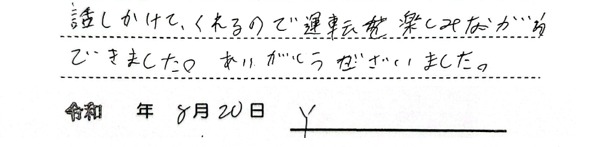 話しかけて、くれるので運転を楽しみながら
できました。ありがとうございました。
令和 年 8月20日 Y